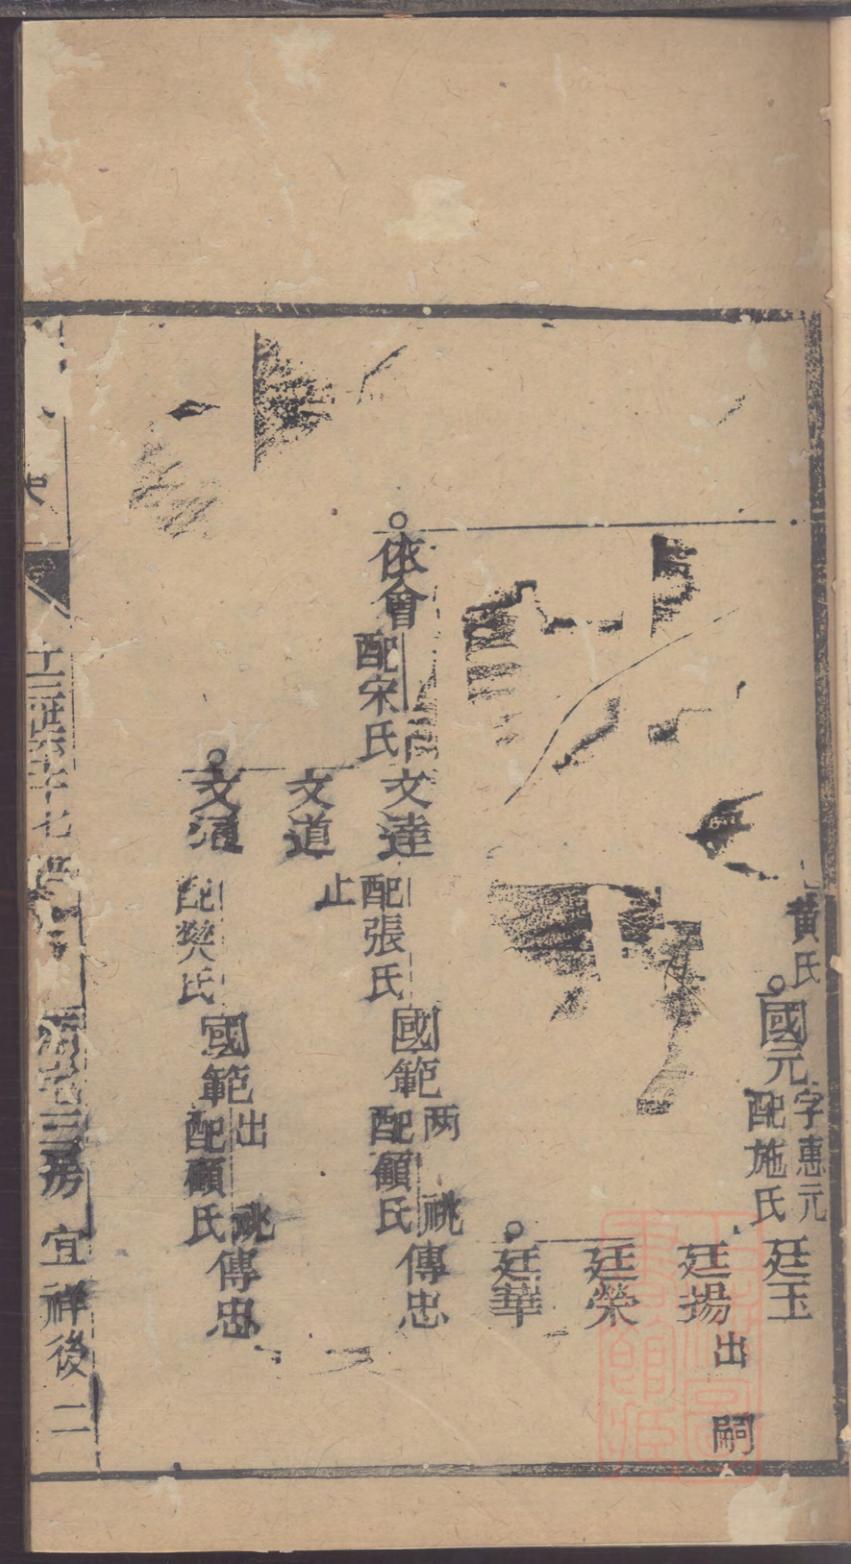 黄氏
國元
字惠元
配施氏
廷玉
廷揚
出嗣
廷榮
廷華
依會
配宋氏
文達
配張氏
國範
两祧
配顧氏
傳忠
文道
止
文通
配樊氏
國範
出祧
配顧氏
傳忠
史
三房
宜祥後
二